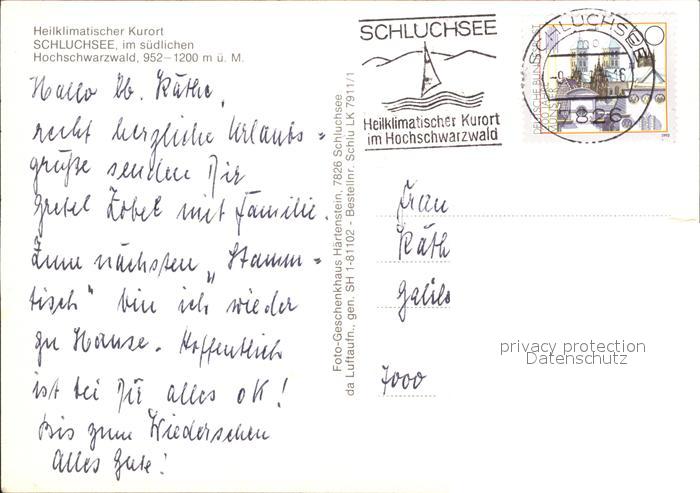 Heilklimatischer Kurort
SCHLUCHSEE, im südlichen
Hochschwarzwald, 952–1200 m ü. M.
Hallo lb. Käthe,
recht herzliche Urlaubs=
grüße senden Dir
Gretel Zobel mit Familie.
Zum nächsten „Stamm=
tisch" bin ich wieder
zu Hause. Hoffentlich
ist bei Dir alles oK!
Bis zum Wiedersehen
Alles Gute!
Foto-Geschenkhaus Härtenstein, 7826 Schluchsee
da Luftaufn., gen. SH 1-81102 - Bestellnr. Schlu LK 7911/1
SCHLUCHSEE
Heilklimatischer Kurort
im Hochschwarzwald
SCHLUCHSEE
7826
DEUTSCHE BUNDESPOST
Frau
Käth
7000
privacy protection
Datenschutz